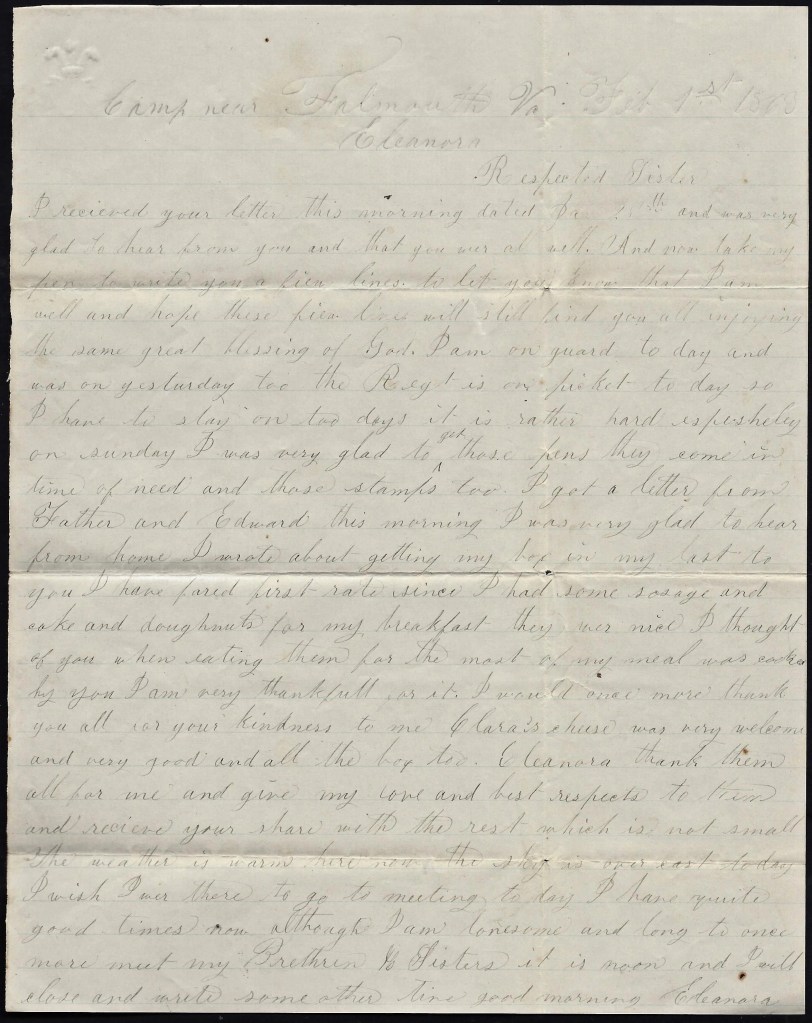 Camp near Falmouth Va. Feb 1st 1863
Eleanora
Respected Sister
I recieved your letter this morning dated th and was very
glad to hear from you and that you wer al well. And now take my
pen to write you a fiew lines to let you know that I am
well and hope these fiew lines will still find you all injoying
the same great blessing of God. I am on guard to day and
was on yesturday too the Regt is on picket to day so
I have to stay on too days it is rather hard espesheley
on sunday I was very glad to get those pens they come in
time of need and those stamps too. I got a letter from
Father and Edward this morning I was very glad to hear
from home I wrote about getting my box in my last to
you I have fared first rate since I had some sosage and
cake and doughnuts for my breakfast they wer nice I thought
of you when eating them for the most of my meal was
by you I am very thankfull for it. I would once more thank
you all for your kindness to me Clara's cheese was very welcome
and very good and all the box too. Eleanora thank them
all for me and give my love and best respects to them
and recieve your share with the rest which is not small
The weather is warm here now the sky is over cast today
I wish I wer there to go to meeting to day I have quite
good times now although I am lonesome and long to once
more meet my Brethren & Sisters it is noon and I will
close and write some other time good morning Eleanora